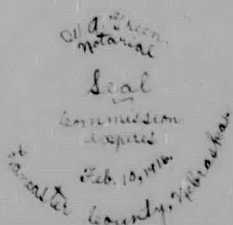 W.A. Green
Notarial
Seal
Commission
Expires
Feb. 10, 1916.
Lancaster County, Nebraska.